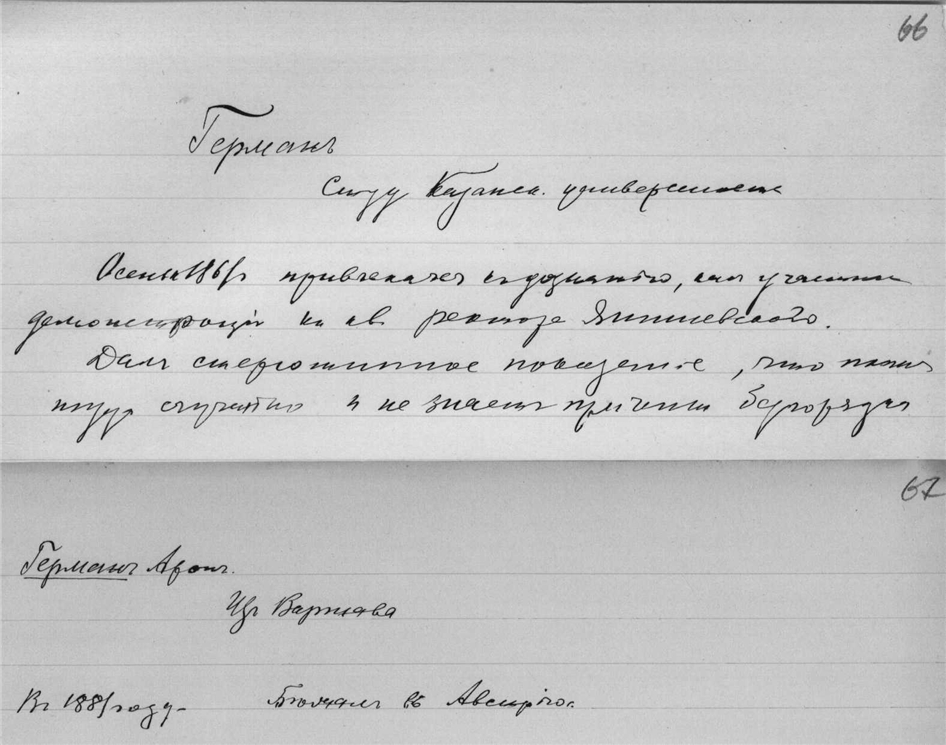 66
Германъ
Студ Казанск. университета
Осенью 1861 г привлекался къ дознанію, какъ участн
демонстраціи на кв ректора Янишевскаго.
Далъ стереотипное показаніе, что попалъ
туда случайно и не знаетъ причины безпорядка
67
Германъ Аронъ.
Изъ Варшавы
Въ 1881 году – Бѣжалъ въ Австрію.